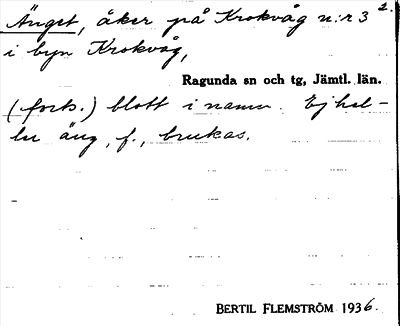 Änget, åker på Krokvåg n:r 3 2.
i byn Krokvåg,
Ragunda sn och tg, Jämtl. län.
(forts.) blott i namn. Ej hel-
ler äng, f., brukas.
BERTIL FLEMSTRÖM 1936.